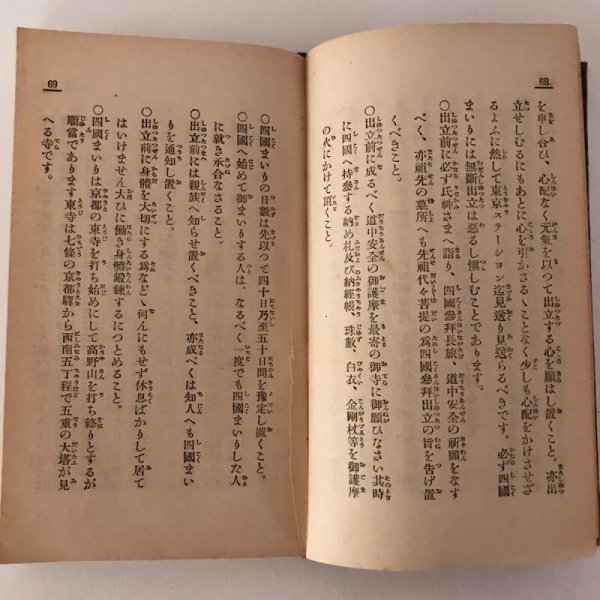 68
を申し合ひ、心配なく元氣を以つて出立する心を願はし置くこと。亦出
立せしむるにもあとに心を引かさるゝことなく少しも心配をかけさせざ
るよふに然して東京ステーション迄見送り見送らるべきです。必ず四國
まいりには無斷出立は惡るし愼しむことであります。
〇出立前に必ず氏神さまへ詣り、四國參拜長旅、道中安全の祈願をなす
べく、亦祖先の墓所へも先祖代々菩提の爲四國參拜出立の旨を告げ置
くべきこと。
〇出立前に成るべく道中安全の御護摩を最寄の御寺に御願ひなさい其時
に四國へ持參する納め札及び納經帳、珠數、白衣、金剛杖等を御護摩
の火にかけて頂くこと。
69
〇四國まいりの日數は先以つて四十日乃至五十日間を豫定し置くこと。
〇四國へ始めて御まいりする人は、なるべく一度でも四國まいりした人
に就き承合なさること。
〇出立前には親族へ知らせ置くべきこと、亦成べくは知人へも四國まい
りを通知し置くこと。
〇出立前に身體を大切にする爲などゝ何んにもせず休息ばかりして居て
はいけません大ひに働き身體鍛錬するにつとめること。
〇四國まいりは京都の東寺を打ち始めにして高野山を打ち終りとするが
順當であります東寺は七條の京都驛から西南五丁程で五重の大塔が見
へる寺です。